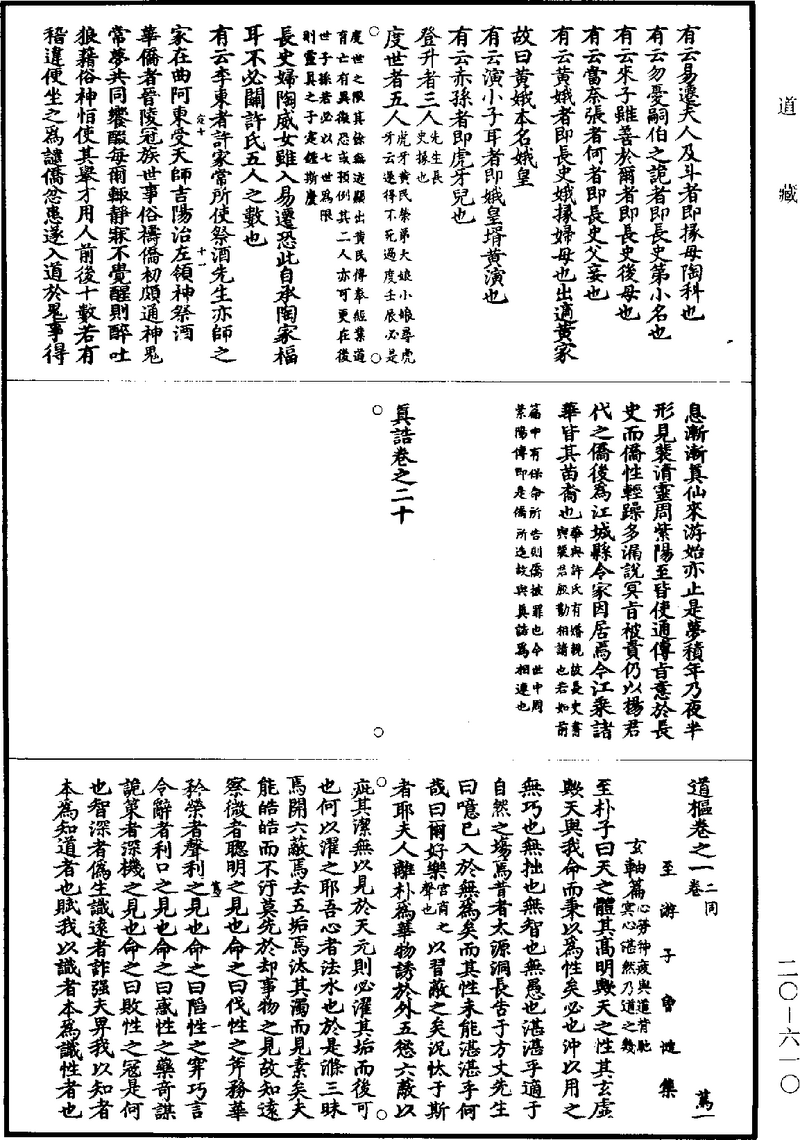 道藏
有云易遷夫人及斗者即掾母陶科也
有云勿憂嗣伯之詭者即長史第小名也
有云來子雖善於爾者即長史後母也
有云當奈張者何者即長史父妾也
有云黃娥者即長史娥掾婦母也出適黃家
故曰黃娥本名娥皇
有云演小子耳者即娥皇壻黃演也
有云赤孫者即虎牙兒也
登升者三人先生長史掾也
度世者五人虎牙黃民榮弟大娘小娘尋虎
牙云遂得不死過度壬辰必是
度世之限其餘無迹顯出黃民傳奉經業道
育亡有異徵恐或預例其二人亦可更在後
世子孫若必以七世爲限
則靈真之于定鍾斯慶
長史婦陶威女雖入易遷恐此自承陶家福
耳不必關許氏五人之數也
有云李東者許家常所使祭酒先生亦師之
家在曲阿東受天師吉陽治左領神祭酒
華僑者晉陵冠族世事俗禱僑初頗通神鬼
常夢共同饗醊每爾輒靜寐不覺醒則醉吐
狼藉俗神恒使其舉才用人前後十數若有
稽違便坐之爲譴僑忿患遂入道於鬼事得
息漸漸真仙來游始亦止是夢積年乃夜半
形見裴清靈周紫陽至皆使通傳旨意於長
史而僑性輕躁多漏說冥旨被責仍以楊君
代之僑後爲江城縣令家因居焉今江乘諸
華皆其苗裔也華與許氏有婚親故長史書
與裴君殷勤相請也若如前
篇中有保命所告則僑被罪也今世中周
紫陽傳即是僑所造故與真誥爲相連也
真誥卷之二十
道樞卷之一二同卷
至游子曾慥集
玄軸篇心勞神疲與道背馳
冥心湛然乃道之幾
至朴子曰天之體其高明歟天之性其玄虛
歟天與我命而秉以爲性矣必也沖以用之
無巧也無拙也無智也無愚也湛湛乎適于
自然之場焉昔者太源洞長告于方丈先生
曰噫已入於無爲矣而其性未能湛湛乎何
哉曰爾好樂宮商之聲也以習蔽之矣況忕于斯
者耶夫人離朴爲華物誘於外五慾六蔽以
疵其潔無以見於天元則必濯其垢而後可
也何以濯之耶吾心者法水也於是滌三昧
焉開六蔽焉去五垢焉汰其濁而見素矣夫
能皓皓而不汙莫先於却事物之見故知遠
察微者聰明之見也命之曰伐性之斧務華
矜榮者聲利之見也命之曰陷性之穽巧言
令辭者利口之見也命之曰惑性之藥奇謀
詭策者深機之見也命之曰敗性之冦是何
也智深者僞生識遠者詐强夫畀我以知者
本爲知道者也賦我以識者本爲識性者也
二〇—六一〇